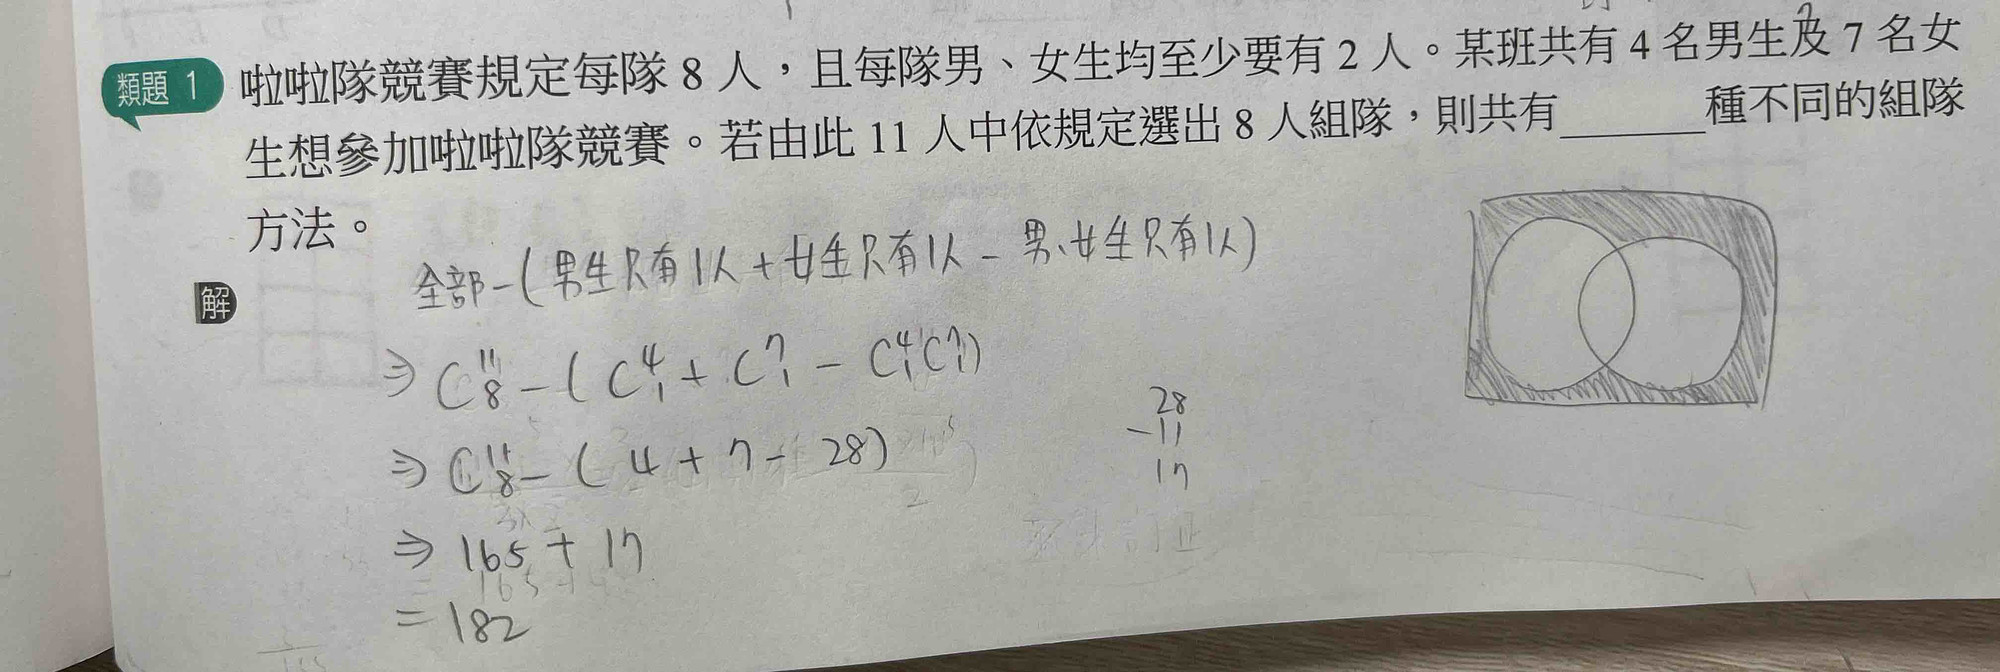 類題 1 啦啦隊競賽規定每隊 8 人，且每隊男、女生均至少要有 2 人。某班共有 4 名男生及 7 名女
生想參加啦啦隊競賽。若由此 11 人中依規定選出 8 人組隊，則共有______種不同的組隊
方法。
解
全部-(男生只有1人+女生只有1人-男、女生只有1人)
⇒ C¹¹₈-(C⁴₁+C⁷₁-C⁴₁C⁷₁)
⇒ C¹¹₈-(4+7-28)
28
-11
17
⇒ 165+17
=182